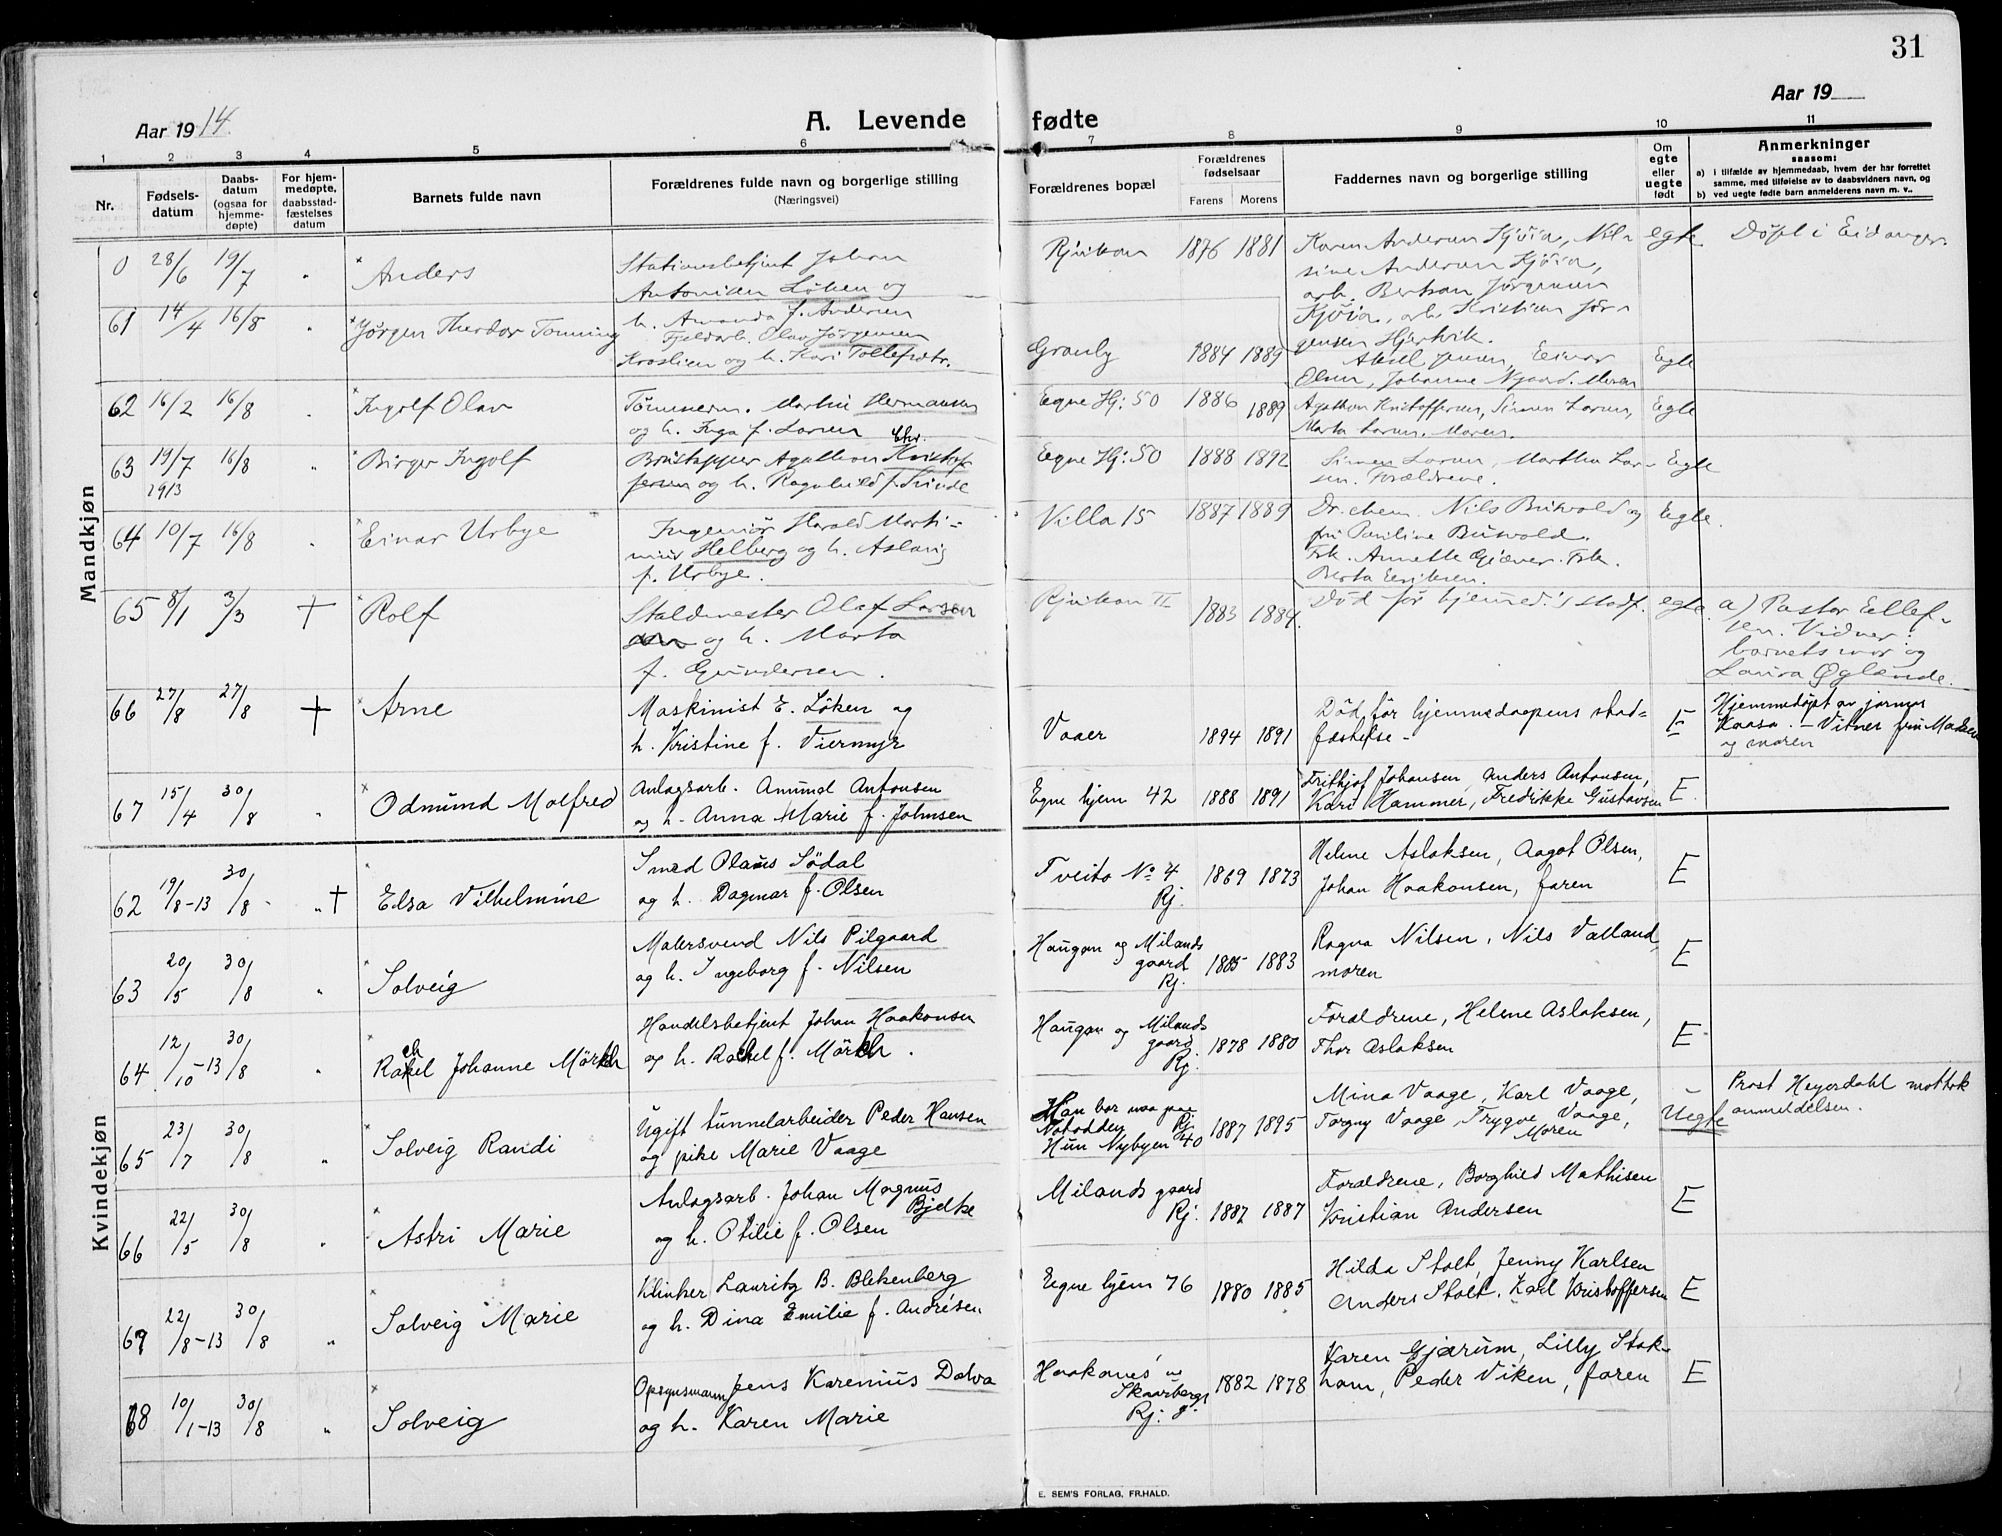 31
Aar 1914.
A. Levende fødte
Aar 19
1 2 3 4 5 6 7 8 9 10 11
Nr.
Fødsels-
datum
Daabs-
datum
(ogsaa for
hjemme-
døpte)
For hjem-
medøpte,
daabsstad-
fæstelses
datum
Barnets fulde navn
Forældrenes fulde navn og borgerlige stilling
(Næringsvei)
Forældrenes bopæl
Forældrenes
fødselsaar
Farens Morens
Faddernes navn og borgerlige stilling
Om
egte
eller
uegte
født
Anmerkninger
saasom:
a) i tilfælde av hjemmedaab, hvem der har forrettet
samme, med tilføielse av to daabsvidners navn, og
b) ved uegte fødte barn anmelderens navn m. v..
Mandkjøn
0 28/6 19/7 " Anders
Stationsbetjent Johan
Antonius Løken og
h. Amanda f. Andersen
Rjukan 1876 1881
Karen Andersen Kjøia, Nil-
sine Andersen Kjøia,
arb. Bertran Jørgensen
Kjøia, arb. Kristian Jør-
gensen Hjertvik.
egte
Døpt i Eidanger.
61 14/4 16/8 " Jørgen Theodor Tonning
Fjeldarb. Olav Jørgensen
Kroslien og h. Kari Tollefsdtr.
Granly 1884 1889
Aksel Jensen, Einar
Olsen, Johanne Nygaard. Moren
Egte
62 16/2 16/8 " Ingolf Olav
Tømmerm. Martin Hermansen
og h. Inga f. Larsen
Egne Hj: 50 1886 1889
Agathon Kristoffersen, Simen Larsen,
Marta Larsen. Moren.
Egte
63 19/7 1913 16/8 " Birger Ingolf
Brustapper Agathon Kristof
Chr.
fersen og h. Ragnhild f. Trinde
Egne Hj: 50 1888 1892
Simen Larsen, Martha Lar-
sen. Forældrene.
Egte
64 10/7 16/8 " Einar Urbye
Ingeniør Harald Marti-
nius Helberg og h. Aslaug
f. Urbye.
Villa 15 1887 1889
Dr. chem. Nils Buwold og
fru Pauline Buwold.
Frk. Annette Gjæver. Frk.
Berta Eeriksen.
Egte.
65 8/1 3/3 † Rolf
Staldmester Olaf Larsen
og h. Marta
f. Gundersen.
Rjukan II 1883 1884.
Død før hjemmed.'s stadf.
egte.
a) Pastor Eellef-
sen. Vidner:
barnets mor og
Laura Øglænde.
66 27/8 27/8 † Arne
Maskinist E. Løken og
h. Kristine f. Viermyr
Vaaer 1894 1891
Død før hjemmedaapens stad=
fæstelse -
E
Hjemmedøpt av jormor
Kaasa. - Vitner fru Madsen
og moren
67 15/4 30/8 " Odmund Malfred
Anlagsarb. Amund Antonsen
og h. Anna Marie f. Johnsen
Egne hjem 42 1888 1891
Frithjof Johansen, Anders Antonsen,
Kari Hammer, Fredrikke Gustavsen
E.
Kvindekjøn
62 19/8-13 30/8 - " † Elsa Vilhelmine
Smed Olaus Södal
og h. Dagmar f. Olsen
Tveito No 4
Rj. 1869 1873
Helene Aslaksen, Aagot Olsen,
Johan Haakonsen, faren
E
63 20/5 30/8 " Solveig
Malersvend Nils Pilgaard
og h. Ingeborg f. Nilsen
Haugan og Milands
gaard
Rj. 1885 1883
Ragna Nilsen, Nils Vatland,
moren
E
64 12/10-13 30/8 " Rachel Johanne Mörch
Handelsbetjent Johan Haakonsen
og h. Rachel f. Mörch.
Haugan og Milands
gaard
Rj. 1878 1880
Forældrene, Helene Aslaksen,
Thor Aslaksen
E
65 23/7 30/8 " Solveig Randi
Ugift tunnelarbeider Peder Hansen
og pike Marie Vaage
Han bor naa paa
Notodden Rj.
Hun Nybyen 40 1887 1895
Mina Vaage, Karl Vaage,
Torgny Vaage, Trygve Vaage,
Moren
Uegte
Prost Heyerdahl mottok
anmeldelsen.
66 22/5 30/8 " Astri Marie
Anlagsarb. Johan Magnus
Bjelke
og h. Otilie f. Olsen
Milands gaard
Rj. 1882 1887
Forældrene, Borghild Mathisen
Kristian Andersen
E
67 22/8-13 30/8 " Solveig Marie
Klinker Lauritz B. Blekenberg
og h. Dina Emilie f. Andrésen
Egne hjem 76 1880 1885
Hilda Stolt, Jenny Karlsen
Anders Stolt. Karl Kristoffersen
E
68 10/1-13 30/8 " Solveig
Opsynsmann Jens Karenius Dalva
og h. Karen Marie
Haakanes
Skaarbergs
Rj: g. 1882 1878
Karen Gjærum, Lilly Stok-
ham, Peder Viken, faren
E
E. SEM'S FORLAG, FR.HALD.